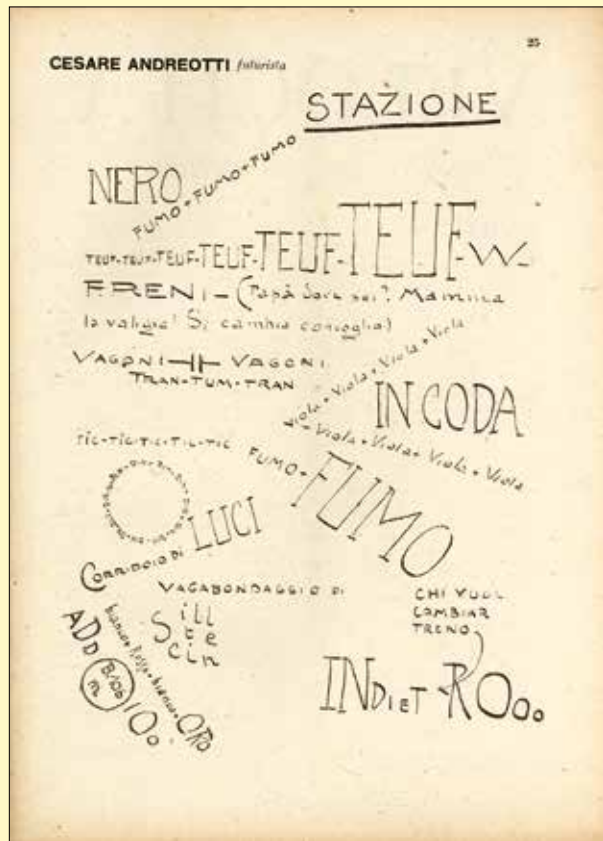 25
CESARE ANDREOTTI futurista
STAZIONE
NERO
FUMO+FUMO+FUMO
TEUF-TEUF-TEUF-TEUF-TEUF-TEUF-W-
FRENI-(Papà dove sei? Mammina
la valigia! Si cambia
VAGONI VAGONI
TRAN-TUM-TRAN
Viola+Viola+Viola+Viola
IN CODA
+Viola+Viola+Viola+Viola
TIC-TIC-TIC-TIC-TIC
FUMO+
FUMO
CORRIDOIO DI LUCI
VAGABONDAGGIO DI
Sill
te
cin
CHI VUOL
CAMBIAR
TRENO
INDIET-ROOo
bianco+Rosso+bianco+ORO
ADD
IOo